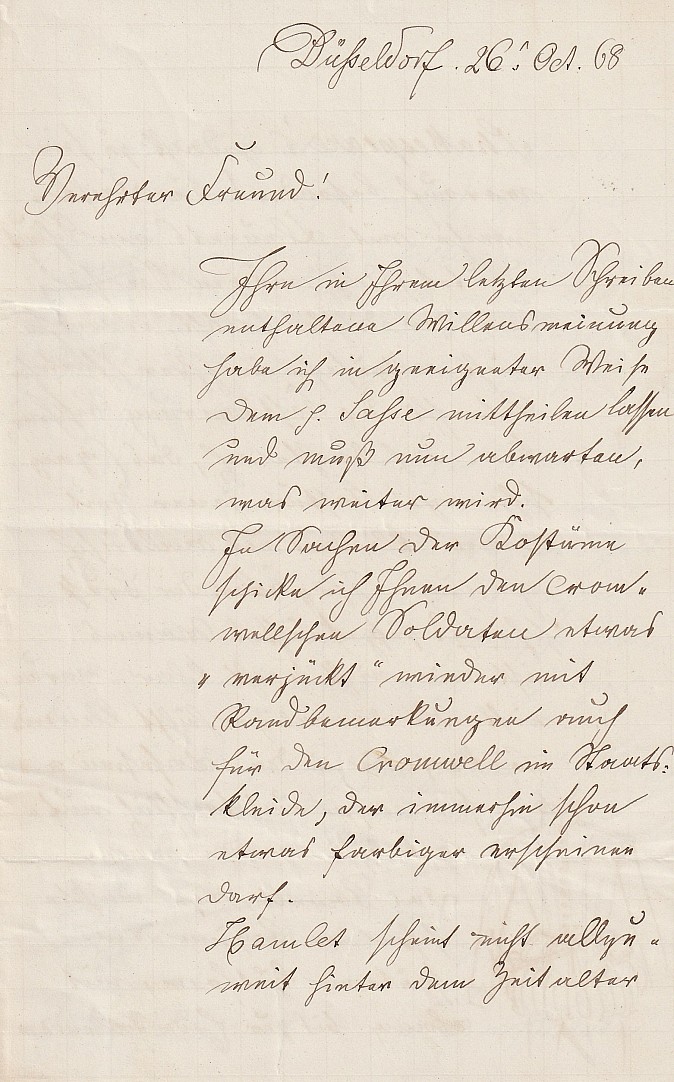 Düsseldorf. 26. Oct. 68
Verehrter Freund!
Ihre in Ihrem letzten Schreiben
enthaltene Willensmeinung
habe ich in geeigneter Weise
dem p. Sasse mittheilen lassen
und muß nun abwarten,
was weiter wird.
In Sachen der Kostüme
schicke ich Ihnen den Crom-
wellschen Soldaten etwas
„verjückt“ wieder mit
Randbemerkungen auch
für den Cromwell im Staats-
kleide, der immerhin schon
etwas farbiger erscheinen
darf.
Hamlet scheint nicht allzu-
weit hinter dem Zeitalter